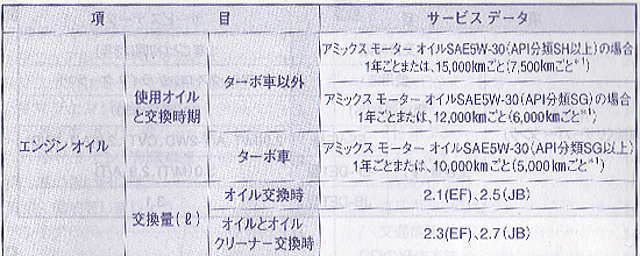 項 目
サービス データ
エンジン オイル
使用オイル
と交換時期
ターボ車以外
アミックス モーター オイルSAE5W-30(API分類SH以上)の場合
1年ごとまたは、15,000kmごと(7,500kmごと※1)
アミックス モーター オイルSAE5W-30(API分類SG)の場合
1年ごとまたは、12,000kmごと(6,000kmごと※1)
ターボ車
アミックス モーター オイルSAE5W-30(API分類SG以上)
1年ごとまたは、10,000kmごと(5,000kmごと※1)
交換量(ℓ)
オイル交換時
2.1(EF)、2.5(JB)
オイルとオイル
クリーナー交換時
2.3(EF)、2.7(JB)